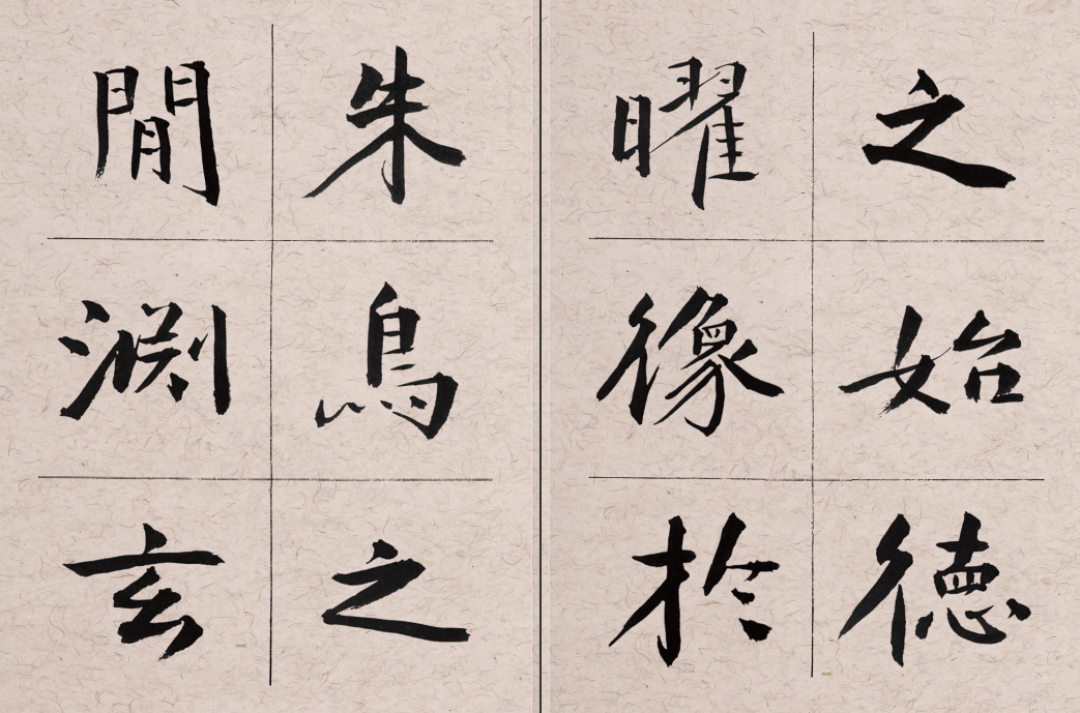 之始德
曜像於
朱鳥之
閒淵玄